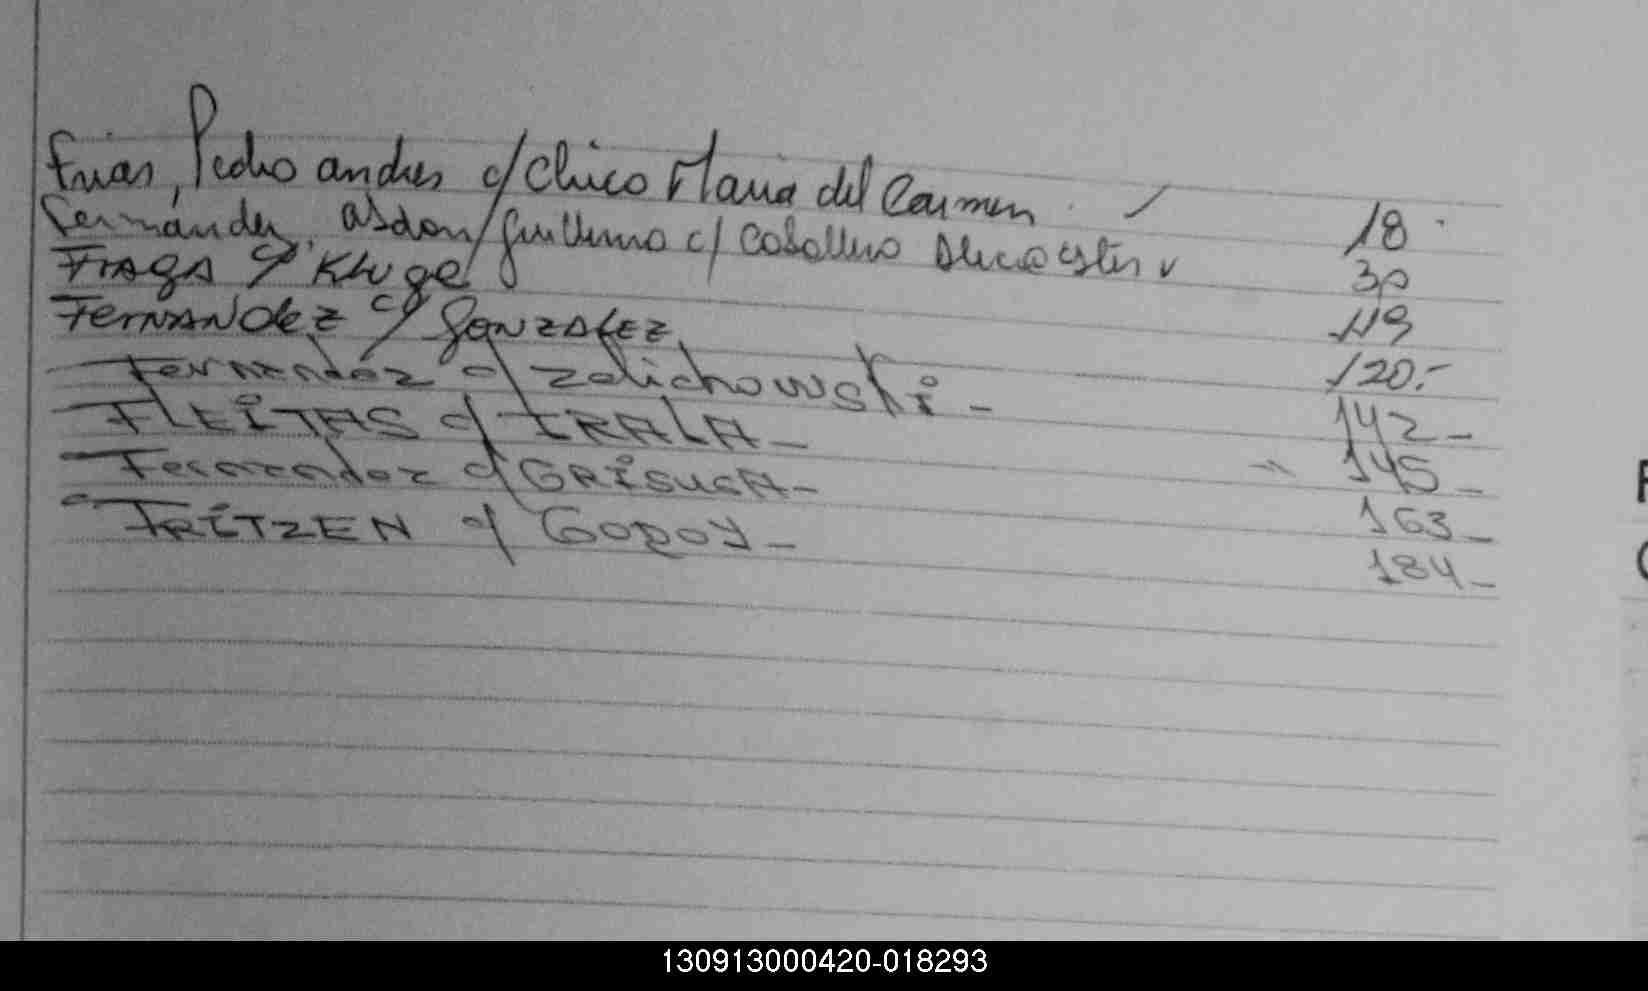 Frias, Pedro andres c/ Chico Maria del Carmen. 18
Fernández, abdon Guillermo c/ Caballero ester 30
FRAGA c/ Kluge 119
FERNANdEZ c/ GONZALEZ 120.-
Fernandez c/ Zelichowski - 142-
FLEITAS c/ IRALA - 145-
Fernandez c/ GRISUCA- 163-
FRITZEN c/ GODOY - 184-
130913000420-018293